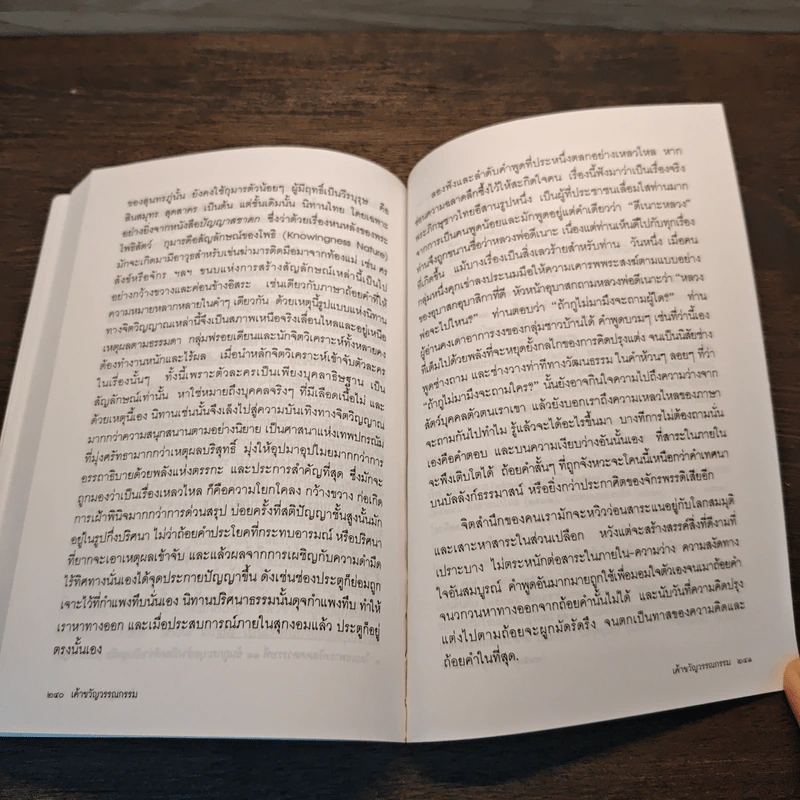 ของสุนทรภู่นั้น ยังคงใช้กุมารตัวน้อยๆ ผู้มีฤทธิ์เป็นวีรบุรุษ คือ
สินสมุทร สุดสาคร เป็นต้น แต่ชั้นเดิมนั้น นิทานไทย โดยเฉพาะ
อย่างยิ่งจากหนังสือปัญญาสชาดก ซึ่งว่าด้วยเรื่องหนหลังของพระ
โพธิสัตว์ กุมารคือสัญลักษณ์ของโพธิ (Knowingness Nature)
มักจะเกิดมามีอาวุธสำหรับเข่นฆ่ามารติดมือมาจากท้องแม่ เช่น ศร
สังข์หรือจักร ฯลฯ ขนบแห่งการสร้างสัญลักษณ์เหล่านี้เป็นไป
อย่างกว้างขวางและค่อนข้างอิสระ เช่นเดียวกับภาษาถ้อยคำที่ให้
ความหมายหลากหลายในคำๆ เดียวกัน ด้วยเหตุนี้รูปแบบแห่งนิทาน
ทางจิตวิญญาณเหล่านี้จึงเป็นสภาพเหนือจริงเลื่อนไหลและอยู่เหนือ
เหตุผลตามธรรมดา กลุ่มฟรอยเดียนและนักจิตวิเคราะห์ทั้งหลายคง
ต้องทำงานหนักและไร้ผล เมื่อนำหลักจิตวิเคราะห์เข้าจับตัวละคร
ในเรื่องนั้นๆ ทั้งนี้เพราะตัวละครเป็นเพียงบุคลาธิษฐาน เป็น
สัญลักษณ์เท่านั้น หาใช่หมายถึงบุคคลจริงๆ ที่มีเลือดเนื้อไม่ และ
ด้วยเหตุนี้เอง นิทานเช่นนั้นจึงเล็งไปสู่ความบันเทิงทางจิตวิญญาณ
มากกว่าความสนุกสนานตามอย่างนิยาย เป็นศาสนาแห่งเทพปกรณัม
ที่มุ่งศรัทธามากกว่าเหตุผลบริสุทธิ์ มุ่งให้อุปมาอุปไมยมากกว่าการ
อรรถาธิบายด้วยพลังแห่งตรรกะ และประการสำคัญที่สุด ซึ่งมักจะ
ถูกมองว่าเป็นเรื่องเหลวไหล ก็คือความโยกโคลง กว้างขวาง ก่อเกิด
การเฝ้าพินิจมากกว่าการด่วนสรุป บ่อยครั้งที่สติปัญญาชั้นสูงนั้นมัก
อยู่ในรูปกึ่งปริศนา ไม่ว่าถ้อยคำประโยคที่กระทบอารมณ์ หรือปริศนา
ที่ยากจะเอาเหตุผลเข้าจับ และแล้วผลจากการเผชิญกับความดำมืด
ไร้ทิศทางนั่นเองได้จุดประกายปัญญาขึ้น ดังเช่นช่องประตูก็ย่อมถูก
เจาะไว้ที่กำแพงทึบนั่นเอง นิทานปริศนาธรรมนั้นดุจกำแพงทึบ ทำให้
เราหาทางออก และเมื่อประสบการณ์ภายในสุกงอมแล้ว ประตูก็อยู่
ตรงนั้นเอง
๒๔๐ เค้าขวัญวรรณกรรม
ลองฟังและลำดับคำพูดที่ประหนึ่งตลกอย่างเหลวไหล หาก
ซ่อนความฉลาดลึกซึ้งไว้ให้สะกิดใจคน เรื่องนี้ฟังมาว่าเป็นเรื่องจริง
พระภิกษุชาวไทยอีสานรูปหนึ่ง เป็นผู้ที่ประชาชนเลื่อมใสท่านมาก
จากการเป็นคนพูดน้อยและมักพูดอยู่แต่คำเดียวว่า “ดีเนาะหลวง”
ท่านจึงถูกขนานชื่อว่าหลวงพ่อดีเนาะ เนื่องแต่ท่านเห็นดีไปกับทุกเรื่อง
ที่เกิดขึ้น แม้บางเรื่องเป็นสิ่งเลวร้ายสำหรับท่าน วันหนึ่ง เมื่อคน
กลุ่มหนึ่งคุกเข่าลงประนมมือให้ความเคารพพระสงฆ์ตามแบบอย่าง
ของอุบาสกอุบาสิกาที่ดี หัวหน้าอุบาสกถามหลวงพ่อดีเนาะว่า “หลวง
พ่อจะไปไหน?” ท่านตอบว่า “ถ้ากูไม่มามึงจะถามผู้ใด?” ท่าน
ผู้อ่านคงเดาอาการงงของกลุ่มชาวบ้านได้ คำพูดบวมๆ เช่นที่ว่านี้เอง
ที่เต็มไปด้วยพลังที่จะหยุดยั้งกลไกของการคิดปรุงแต่ง จนเป็นนิสัยช่าง
พูดช่างถาม และช่างวางท่าทีทางวัฒนธรรม ในคำห้วนๆ ลอยๆ ที่ว่า
“ถ้ากูไม่มามึงจะถามใคร?” นั้นยังอาจกินใจความไปถึงความว่างจาก
สัตว์บุคคลตัวตนเราเขา แล้วยังบอกเราถึงความเหลวไหลของภาษา
จะถามกันไปทำไม รู้แล้วจะได้อะไรขึ้นมา บางทีการไม่ต้องถามนั่น
เองคือคำตอบ และบนความเงียบว่างอันนั้นเอง ที่สาระในภายใน
จะพึงเติบโตได้ ถ้อยคำสั้นๆ ที่ถูกจังหวะจะโคนนี้เหนือกว่าคำเทศนา
บนบัลลังก์ธรรมาสน์ หรือยิ่งกว่าประกาศิตของจักรพรรดิเสียอีก
จิตสำนึกของคนเรามักจะหวิวว่อนสาระแนอยู่กับโลกสมมุติ
และเสาะหาสาระในส่วนเปลือก หวังแต่จะสร้างสรรค์สิ่งที่ดีงามที่
เปราะบาง ไม่ตระหนักต่อสาระในภายใน-ความว่าง ความสงัดทาง
ใจอันสมบูรณ์ คำพูดอันมากมายถูกใช้เพื่อมอมใจตัวเองจนเมาถ้อยคำ
จนวกวนหาทางออกจากถ้อยคำนั้นไม่ได้ และนับวันที่ความคิดปรุง
แต่งไปตามถ้อยจะผูกมัดรัดรึง จนตกเป็นทาสของความคิดและ
ถ้อยคำในที่สุด.
เค้าขวัญวรรณกรรม ๒๔๑